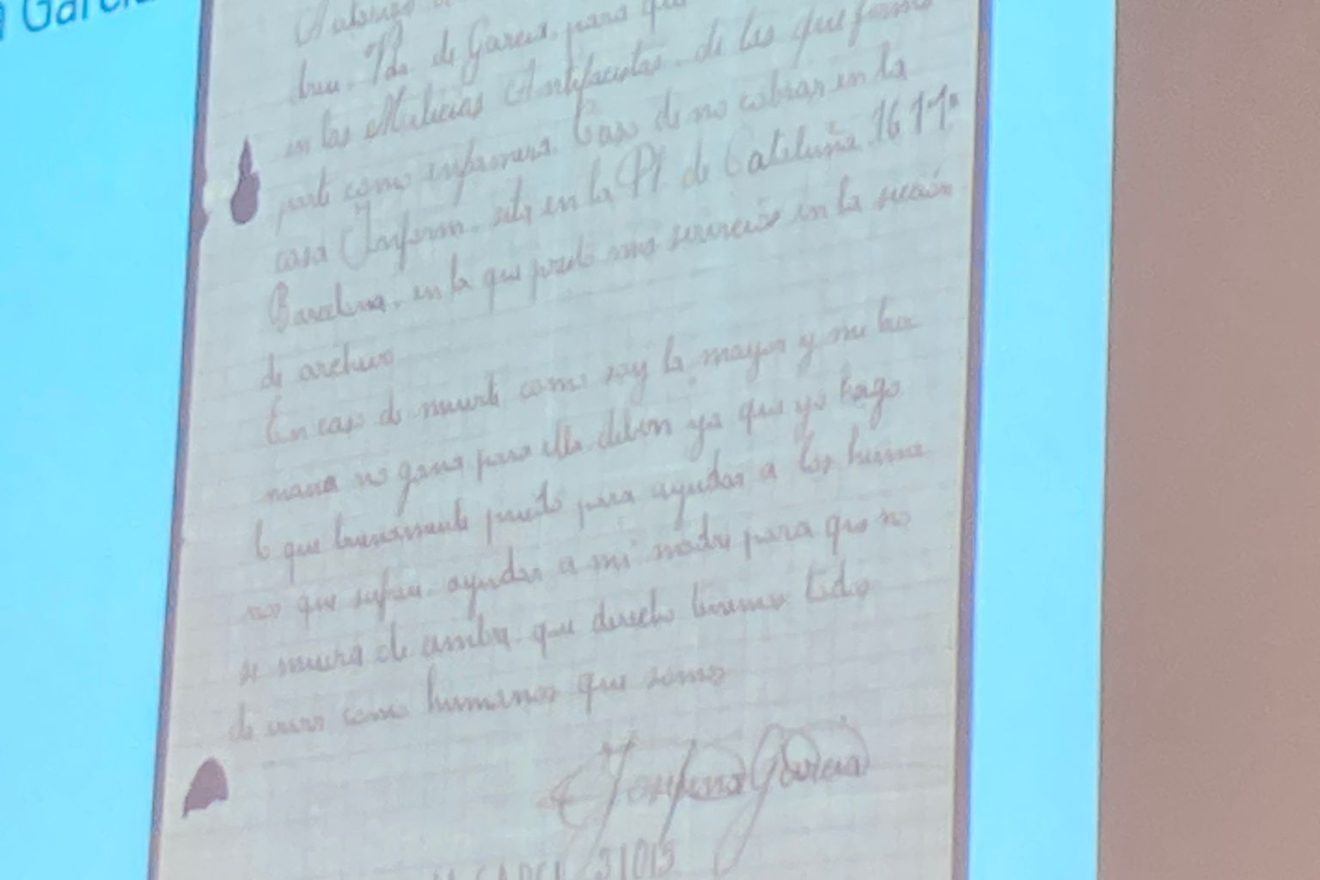 Garcia
de Garcia, para que
en las Milicias Antifacistas. de las que formo
parte como enfermera. Caso de no cobrar en la
casa Inform. sita en la Pl de Cataluña 16 1º 1ª
Barcelona. en la que presto mis servicios en la sección
de archivo
En caso de muerte como soy la mayor y mi her
mana no gana para ella deben ya que yo hago
lo que buenamente puedo para ayudar a los herma
nos que sufren. ayudar a mi madre para que no
se muera de ambre. que derecho tenemos todo
de vivir como humanos que somos
Josefina Garcia
31015